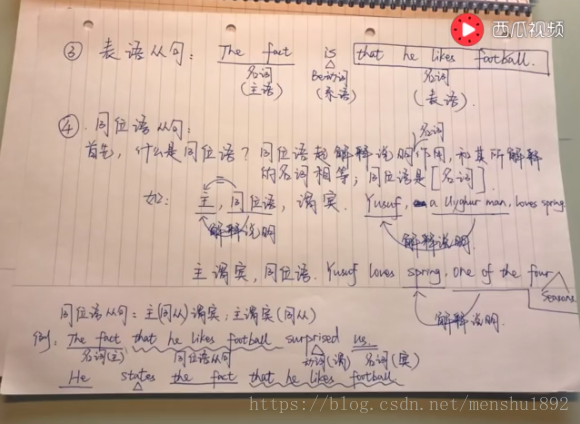 西瓜视频
③ 表语从句: The fact is that he likes football.
名词 Be动词 名词
(主语) (系语) (表语).
④. 同位语从句:
名词
首先, 什么是同位语? 同位语起解释说明作用, 和其所解释
的名词相等, 同位语是[名词].
如: 主, 同位语, 谓宾. Yusuf, a Uyghur man, loves spring
解释说明 解释说明.
主谓宾, 同位语. Yusuf loves spring, one of the four
seasons
解释说明.
同位语从句: 主(同从)谓宾; 主谓宾(同从)
例: The fact that he likes football surprised us.
名词(主) 同位语从句 动词(谓) 名词(宾)
He states the fact that he likes football
https://blog.csdn.net/menshu1892